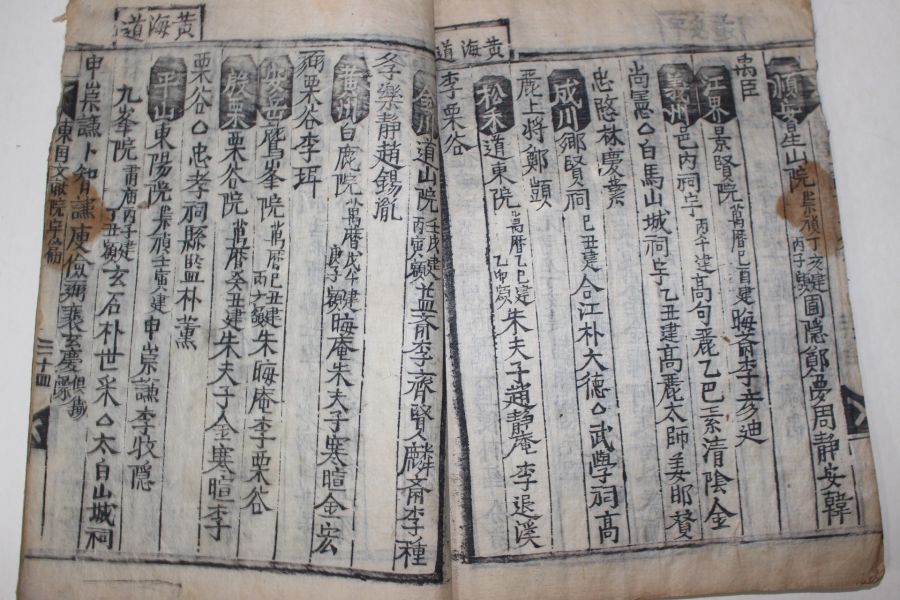 黃海道
順安星山院崇禎丁亥建丙子額圃隱鄭夢周靜安韓
禹臣
江界景賢院萬曆己酉建晦齋李彦迪
丙午建高句麗乙巴素淸陰金
義州邑内祠宇
尙憲△白馬山城祠宇乙丑建高麗太師姜邯贊
忠愍林慶業
成川鄕賢祠己丑建合江朴大德△武學祠高
麗上將鄭顗
松禾道東院萬曆乙巳建乙甲額朱夫子趙靜庵李退溪
李栗谷
黃海道
金川道山院壬戌建丙寅額益齋李齊賢麟齋李種
學樂靜趙錫胤
黃州白鹿院萬曆戊午建庚子額晦庵朱夫子寒暄金宏
弼栗谷李珥
安岳鷲峯院萬曆己丑建丙子額朱晦庵李栗谷
殷栗栗谷院萬曆癸丑建朱夫子金寒暄李
栗谷△忠孝祠縣監朴薰
平山東陽院崇禎壬寅建申崇謙李牧隱
九峯院甫廟丙子建丁丑額玄石朴世采△太白山城祠
申崇謙卜智謙庾儉弼裵玄慶
東国文献院宇篇
三十四